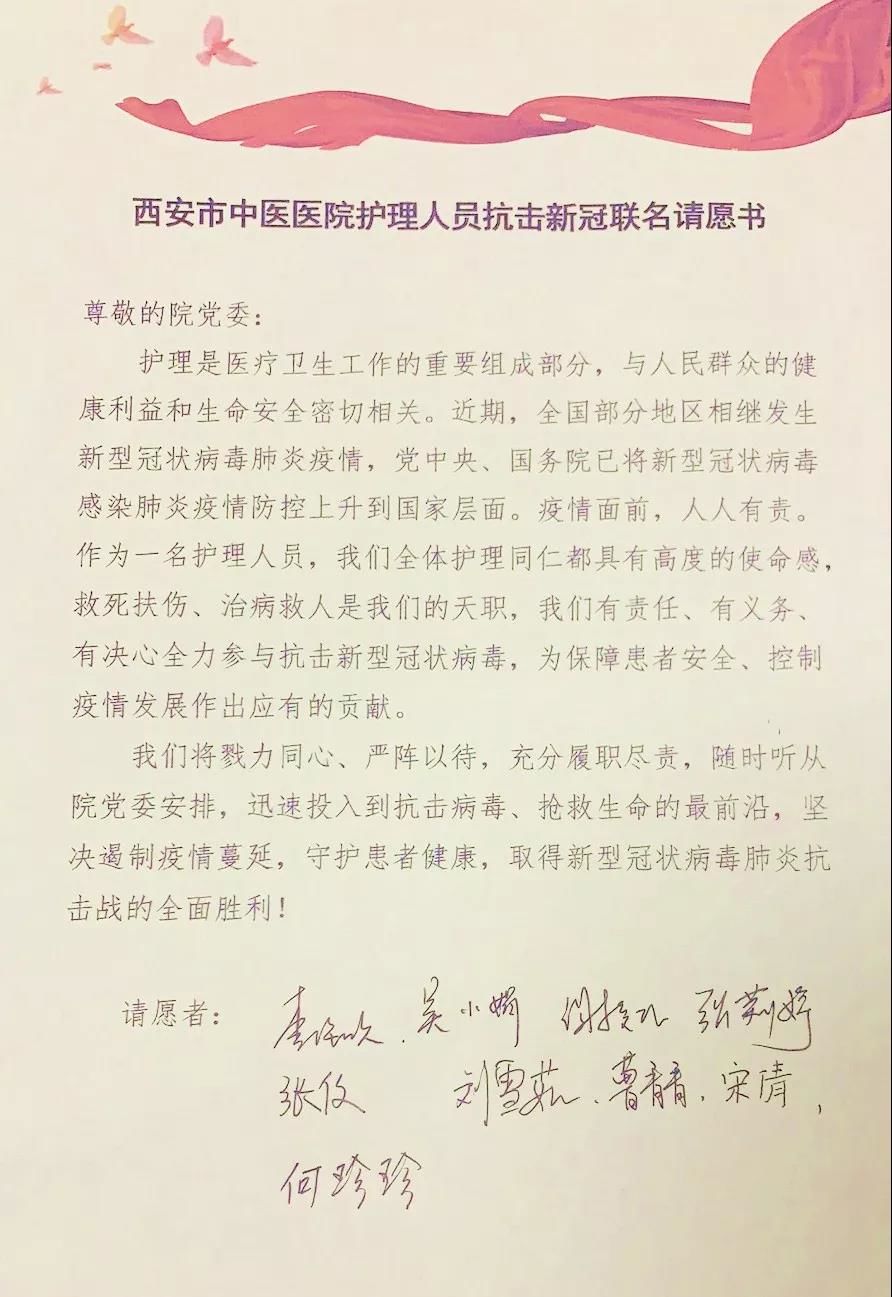 西安市中医医院护理人员抗击新冠联名请愿书
尊敬的院党委：
护理是医疗卫生工作的重要组成部分，与人民群众的健
康利益和生命安全密切相关。近期，全国部分地区相继发生
新型冠状病毒肺炎疫情，党中央、国务院已将新型冠状病毒
感染肺炎疫情防控上升到国家层面。疫情面前，人人有责。
作为一名护理人员，我们全体护理同仁都具有高度的使命感，
救死扶伤、治病救人是我们的天职，我们有责任、有义务、
有决心全力参与抗击新型冠状病毒，为保障患者安全、控制
疫情发展作出应有的贡献。
我们将戮力同心、严阵以待，充分履职尽责，随时听从
院党委安排，迅速投入到抗击病毒、抢救生命的最前沿，坚
决遏制疫情蔓延，守护患者健康，取得新型冠状病毒肺炎抗
击战的全面胜利！
请愿者： 吴小娟 张莉婷
刘雪茹、曹青青、宋倩，
何珍珍